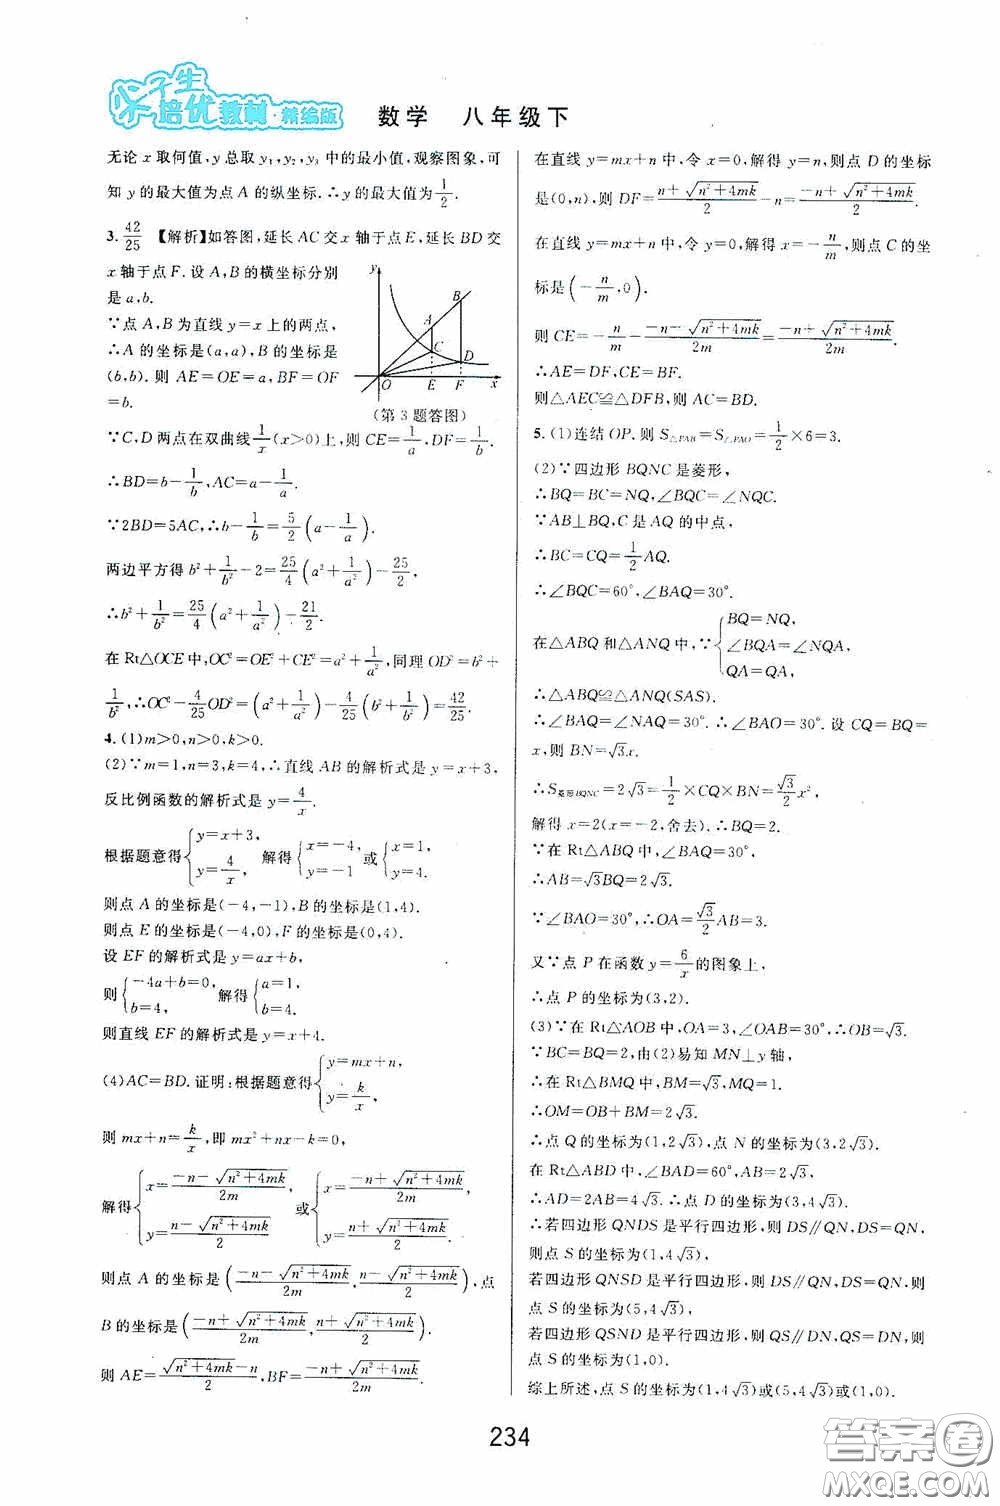 尖子生
培优教材·精编版
数学 八年级下
无论 x 取何值,y 总取 y₁,y₂,y₃ 中的最小值,观察图象,可
知 y 的最大值为点 A 的纵坐标.∴y 的最大值为1/2.
3. 42/25 【解析】如答图,延长 AC 交 x 轴于点 E,延长 BD 交
x 轴于点 F. 设 A,B 的横坐标分别
是 a,b.
∵点 A,B 为直线 y=x 上的两点,
∴A 的坐标是(a,a),B 的坐标是
(b,b). 则 AE=OE=a,BF=OF
=b.
y
B
A
C
D
O E F x
(第 3 题答图)
∵C,D 两点在双曲线 1/x (x>0)上,则 CE=1/a,DF=1/b.
∴BD=b-1/b,AC=a-1/a.
∵2BD=5AC,∴b-1/b=5/2(a-1/a).
两边平方得 b²+1/b²-2=25/4(a²+1/a²)-25/2,
∴b²+1/b²=25/4(a²+1/a²)-21/2.
在 Rt△OCE 中,OC²=OE²+CE²=a²+1/a²,同理 OD²=b²+
1/b²,∴OC²-4/25OD²=(a²+1/a²)-4/25(b²+1/b²)=42/25.
4. (1)m>0,n>0,k>0.
(2)∵m=1,n=3,k=4,∴直线 AB 的解析式是 y=x+3,
反比例函数的解析式是 y=4/x.
根据题意得{y=x+3, y=4/x, 解得{x=-4, y=-1 或{x=1, y=4.
则点 A 的坐标是(-4,-1),B 的坐标是(1,4).
则点 E 的坐标是(-4,0),F 的坐标是(0,4).
设 EF 的解析式是 y=ax+b,
则{-4a+b=0, b=4, 解得{a=1, b=4.
则直线 EF 的解析式是 y=x+4.
(4)AC=BD. 证明:根据题意得{y=mx+n, y=k/x,
则 mx+n=k/x,即 mx²+nx-k=0,
解得{x=(-n-√(n²+4mk))/2m, y=(n-√(n²+4mk))/2 或{x=(-n+√(n²+4mk))/2m, y=(n+√(n²+4mk))/2.
则点 A 的坐标是((-n-√(n²+4mk))/2m,(n-√(n²+4mk))/2),点
B 的坐标是((-n+√(n²+4mk))/2m,(n+√(n²+4mk))/2).
则 AE=(√(n²+4mk)-n)/2,BF=(n+√(n²+4mk))/2.
在直线 y=mx+n 中,令 x=0,解得 y=n,则点 D 的坐标
是(0,n),则 DF=(n+√(n²+4mk))/2-n=(-n+√(n²+4mk))/2.
在直线 y=mx+n 中,令 y=0,解得 x=-n/m,则点 C 的坐
标是(-n/m,0).
则 CE=-n/m-(-n-√(n²+4mk))/2m=(-n+√(n²+4mk))/2m.
∴AE=DF,CE=BF.
则△AEC≌△DFB,则 AC=BD.
5. (1)连结 OP. 则 S△PAB=S△PAO=1/2×6=3.
(2)∵四边形 BQNC 是菱形,
∴BQ=BC=NQ,∠BQC=∠NQC.
∵AB⊥BQ,C 是 AQ 的中点,
∴BC=CQ=1/2AQ.
∴∠BQC=60°,∠BAQ=30°.
在△ABQ 和△ANQ 中,∵{BQ=NQ, ∠BQA=∠NQA, QA=QA
∴△ABQ≌△ANQ(SAS).
∴∠BAQ=∠NAQ=30°. ∴∠BAO=30°. 设 CQ=BQ=
x,则 BN=√3x.
∴S菱形BQNC=2√3=1/2×CQ×BN=√3/2x²,
解得 x=2(x=-2,舍去). ∴BQ=2.
∵在 Rt△ABQ 中,∠BAQ=30°,
∴AB=√3BQ=2√3.
∵∠BAO=30°,∴OA=√3/2AB=3.
又∵点 P 在函数 y=6/x的图象上,
∴点 P 的坐标为(3,2).
(3)∵在 Rt△AOB 中,OA=3,∠OAB=30°,∴OB=√3.
∵BC=BQ=2,由(2)易知 MN⊥y 轴,
∴在 Rt△BMQ 中,BM=√3,MQ=1.
∴OM=OB+BM=2√3.
∴点 Q 的坐标为(1,2√3),点 N 的坐标为(3,2√3).
在 Rt△ABD 中,∠BAD=60°,AB=2√3,
∴AD=2AB=4√3. ∴点 D 的坐标为(3,4√3).
∴若四边形 QNDS 是平行四边形,则 DS∥QN,DS=QN.
则点 S 的坐标为(1,4√3).
若四边形 QNSD 是平行四边形,则 DS∥QN,DS=QN,则
点 S 的坐标为(5,4√3),
若四边形 QSND 是平行四边形,则 QS∥DN,QS=DN,则
点 S 的坐标为(1,0).
综上所述,点 S 的坐标为(1,4√3)或(5,4√3)或(1,0).
234
答案卷
MXQE.COM